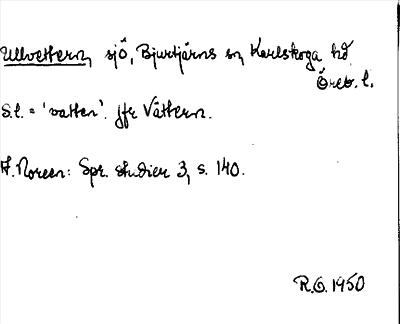 Ullvettern, sjö, Bjurtjärns sn, Karlskoga hd.
Öreb. l.
S.l. = 'vatten'. Jfr Vättern.
A. Noreen: Spr. studier 3, s. 140.
R.O. 1950